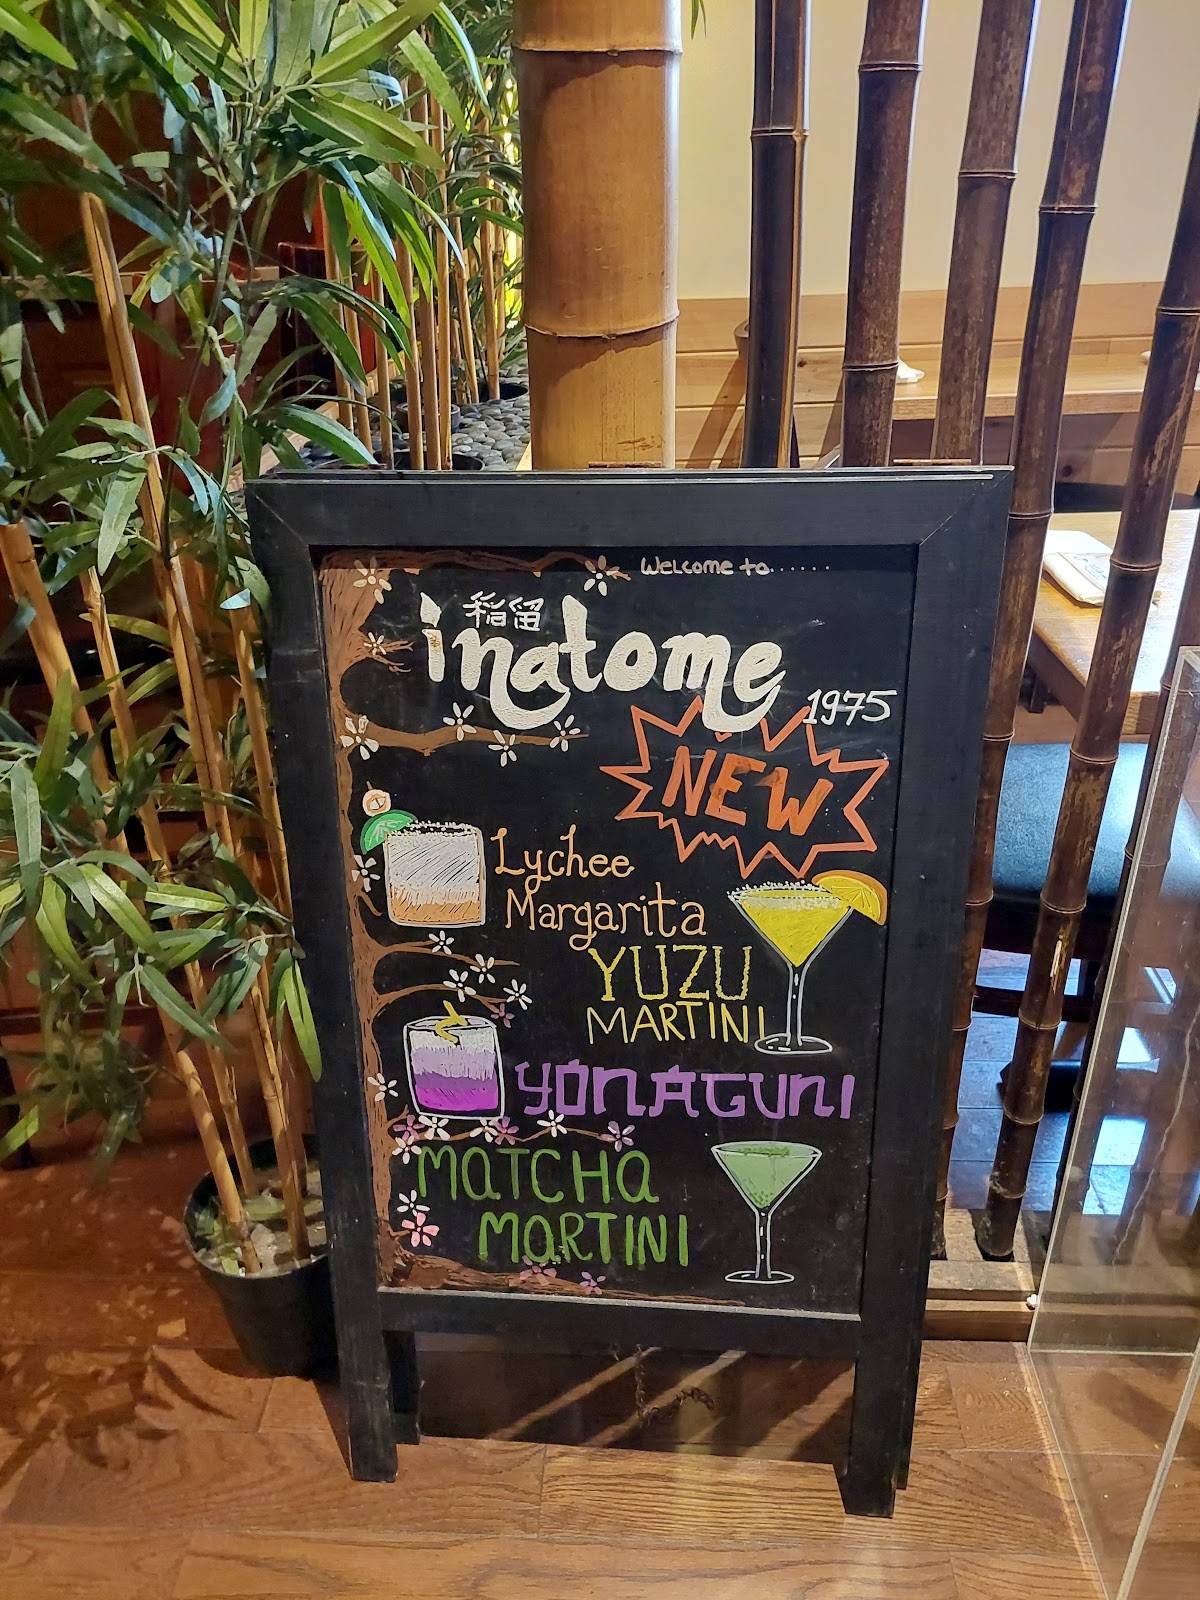 Welcome to......
稲留
inatome
1975
NEW
Lychee
Margarita
YUZU
MARTINI
YONAGUNI
MATCHA
MARTINI